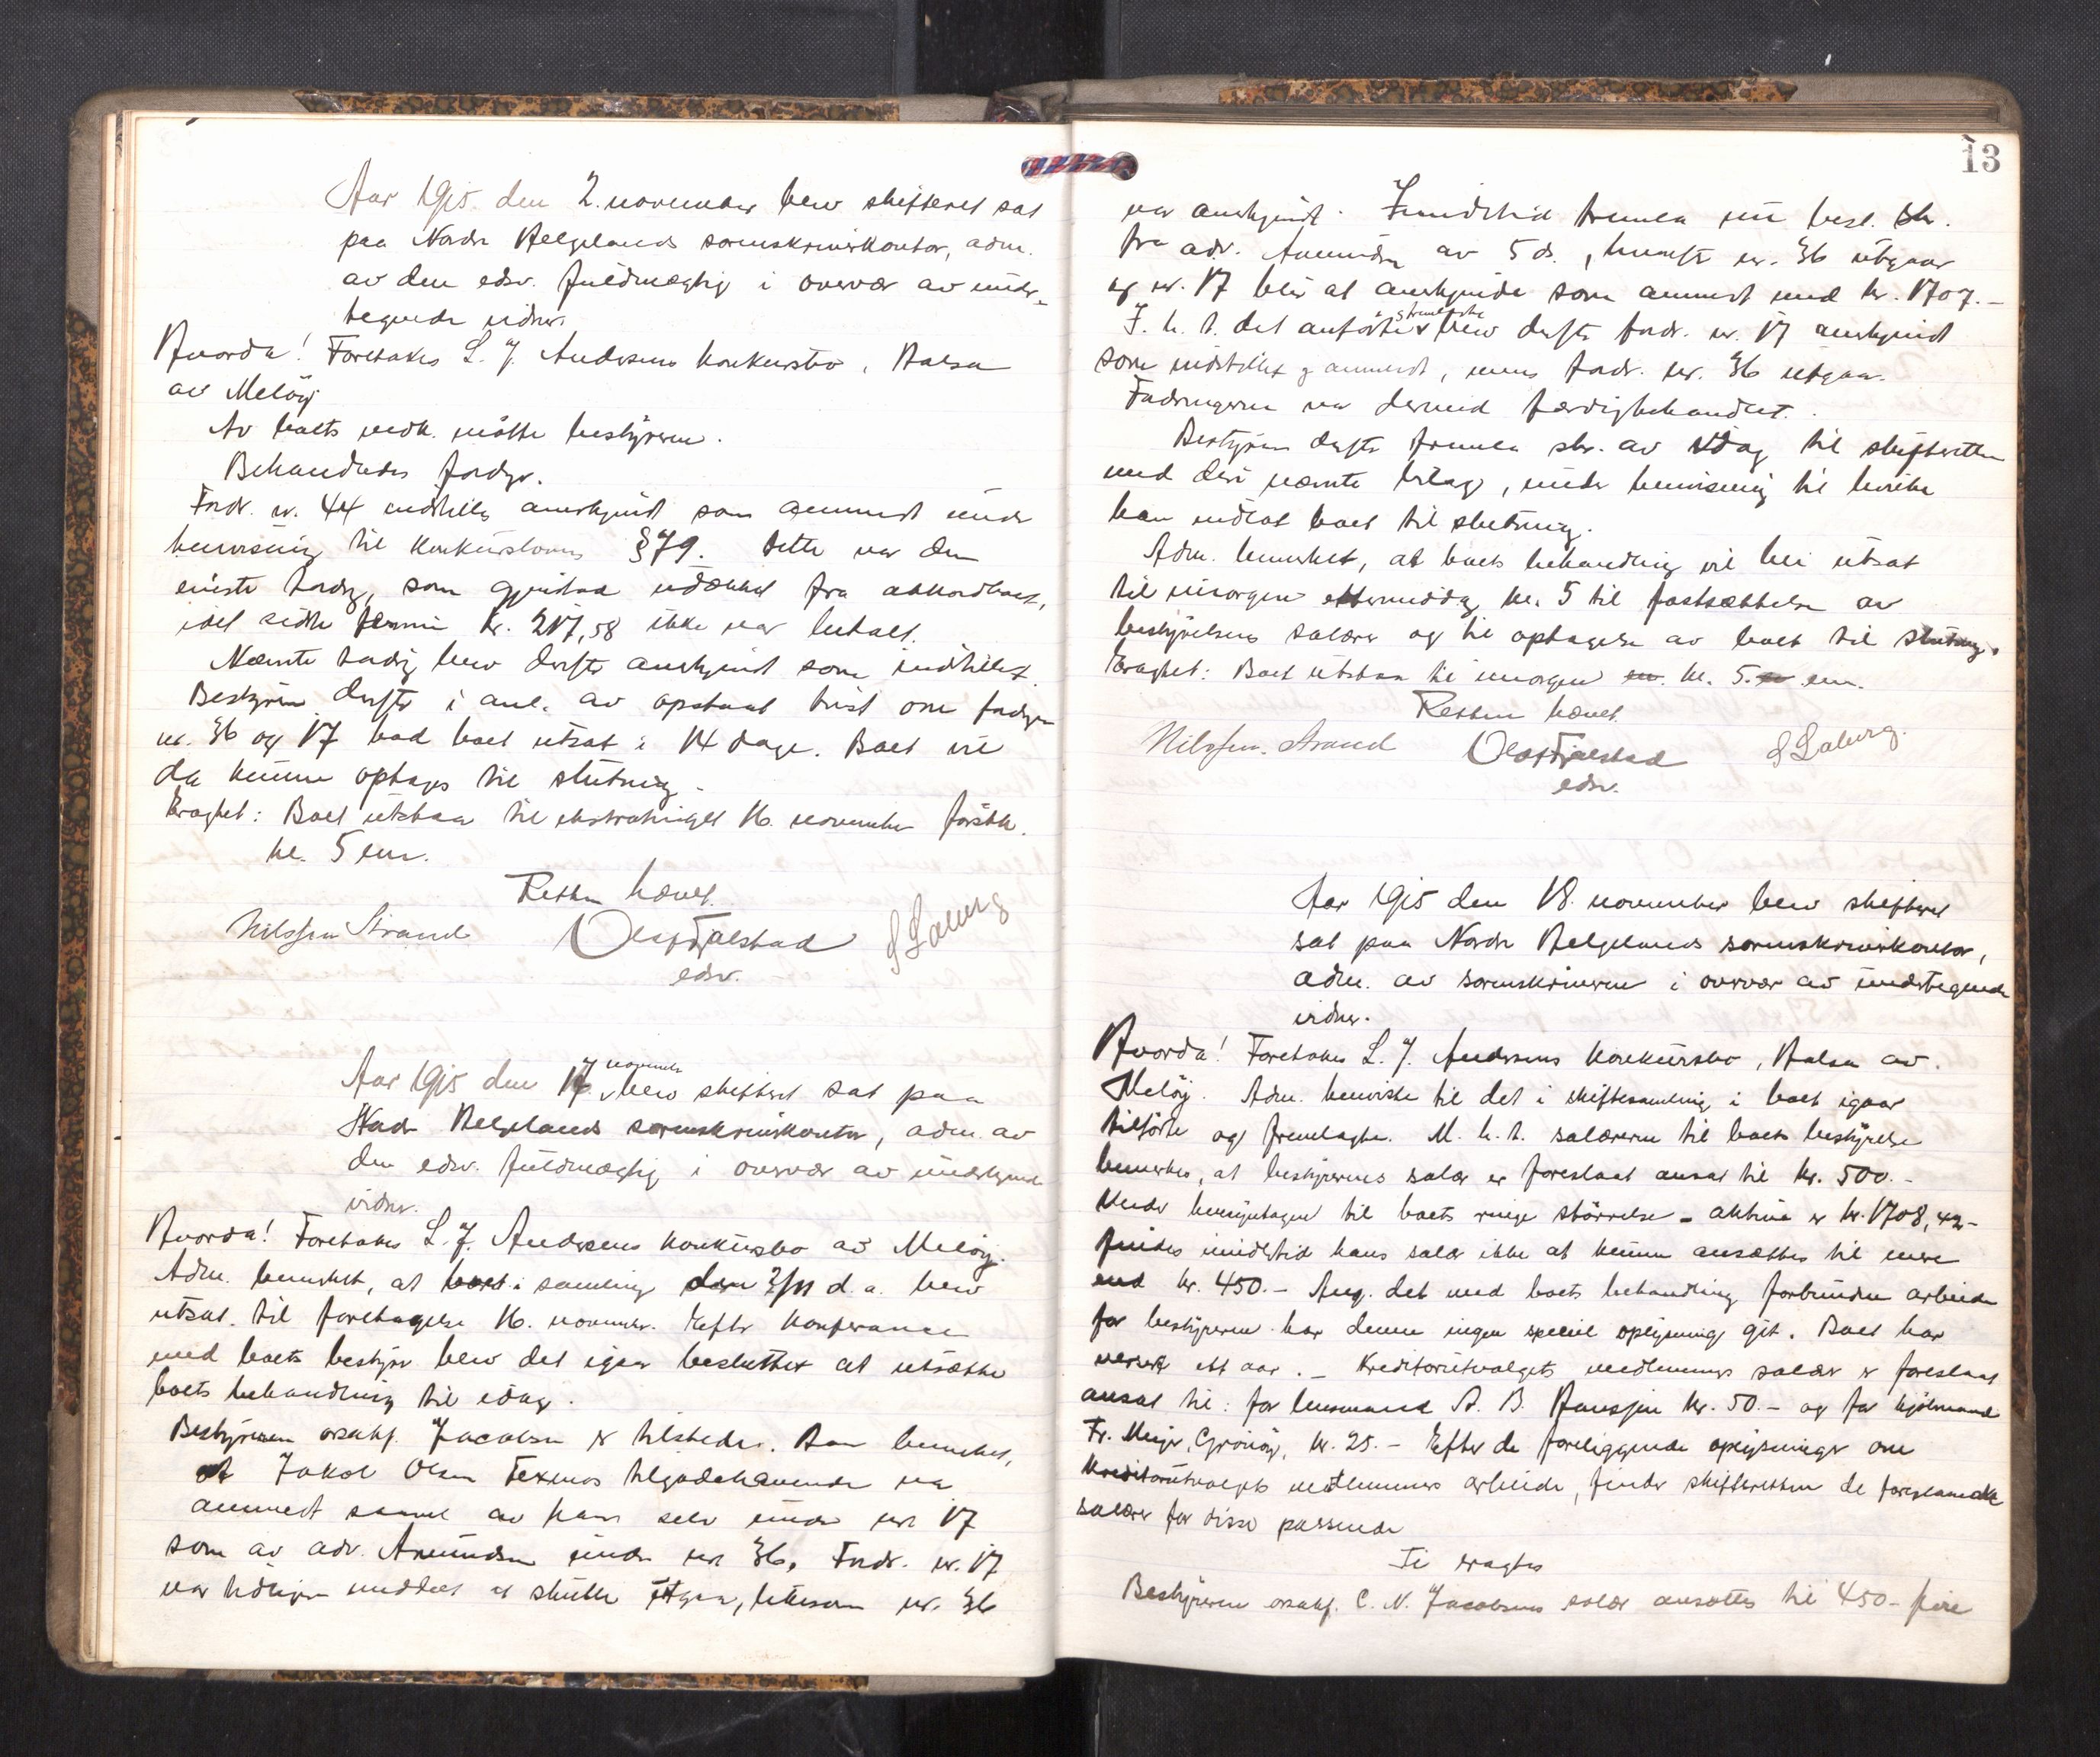 Aar 1915 den 2. november blev skifteret sat
paa Nordre Helgelands sorenskriverkontor, adm.
av den edsv. fuldmægtig i overvær av under-
tegnede vidner.
Hvorda! Foretokes L. J. Andersens konkursbo, Halsa
av Meløy
Av boets vedk. møtte bestyreren.
Behandledes fordgr.
Fordr. nr. 44 indstilles anerkjendt som anmeldt under
henvisning til konkurslovens §79. Dette var den
eneste fordg, som gjenstod udækket fra akkordboet,
idet sidste termin kr. 217,58 ikke var betalt.
Nævnte fordg blev derefter anerkjendt som indstillet.
Bestyreren derefter i anl. av opstaat tvist om fordgen
nr. 36 og 17 bad boet utsat i 14 dage. Boet vil
da kunne optages til slutning.
Eragtet: Boet utstaar til ekstratinget 16. november førstk.
kl. 5 em.
Retten hævet.
Nilssen Strand Olaf Fjalstad S Solberg
edsv.
Aar 1915 den 17 november blev skifteret sat paa
Nordr Helgelands sorenskriverkontor, adm. av
den edsv. fuldmægtig i overvær av undertegnede
vidner.
Hvorda! Foretokes L. J. Andersens konkursbo av Meløy.
Adm. bemerket, at boet i samling den 2/11 d.a. blev
utsat til foretagelse 16. novembr. Efter konferance
med boets bestyrer blev det igaar besluttet at utsætte
boets behandling til idag.
Bestyreren orsakf. Jacobsen er tilstede. Han bemerket,
at Jakob Olsen Texmos tilgodehavende var
anmeldt saavel av ham selv under nr 17
som av adv. Amundsen under nr 36. Fordr. nr. 17
var tidligere meddelt at skulle utgaa, likesom nr. 36
13
var anerkjendt. Imidlertid fremla nu best. skr.
fra adv. Amundsen av 5 ds., hvorefter nr. 36 utgaar
og nr. 17 blir at anerkjende som anmeldt med kr. 1707.-
I. h. t. det anførte & fremlagte blev derefter fordr. nr. 17 anerkjendt
som indstillet og anmeldt, mens fordr. nr. 36 utgaar.
Fordringerne var dermed færdigbehandlet.
Bestyreren derefter fremla skr. av idag til skifteretten
med deri nævnte bilag, under henvisning til hvilke
han indlot boet til slutning.
Adm. bemerket, at boets behandling vil bli utsat
til imorgen eftermiddag kl. 5 til fastsættelse av
bestyrelsens salærer og til optagelse av boet til slutning.
Eragtet: Boet utstaar til imorgen kl. 5. em.
Retten hævet.
Nilssen Strand Olaf Fjalstad S Solberg.
edsv.
Aar 1915 den 18. november blev skifteret
sat paa Nordre Helgelands sorenskriverkontor,
adm. av sorenskriveren i overvær av undertegnede
vidner.
Hvorda! Foretokes L. J. Andersens konkursbo, Halsa av
Meløy. Adm. henviste til det i skiftesamling i boet igaar
tilførte og fremlagte. M. h. t. salærerne til boets bestyrelse
bemerkes, at bestyrerens salær er foreslaat ansat til kr. 500.-
Under hensyntagen til boets ringe størrelse - aktiva er kr. 1708,42 -
findes imidlertid hans salær ikke at kunne ansættes til mere
end kr. 450.- Ang. det med boets behandling forbundne arbeide
for bestyreren har denne ingen speciel oplysning git. Boet har
versert ett aar. - Kreditorutvalgets medlemmers salær er foreslaat
ansat til: for lensmand A. B. Hansjen kr. 50.- og for kjøbmand
Fr. Meyer, Grønøy, kr. 25.- Efter de foreliggende oplysninger om
kreditorutvalgets medlemmers arbeide, finder skifteretten de foreslaaede
salærer for disse passende
Ti eragtes
Bestyreren orsakf. C. N. Jacobsens salær ansættes til 450 - fire